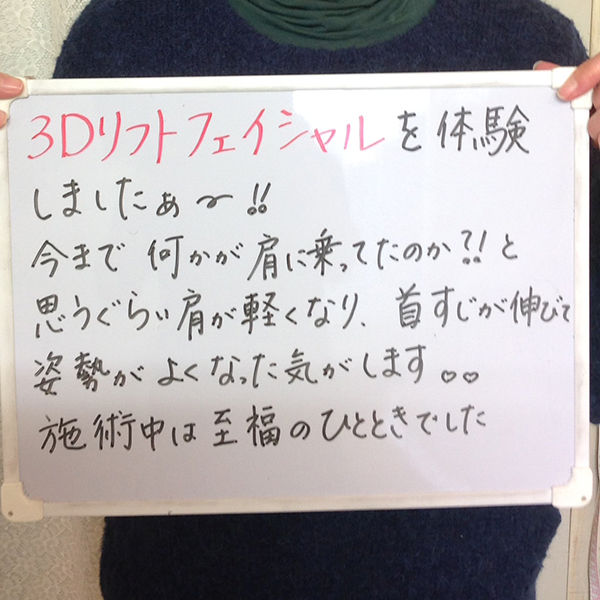 3Dリフトフェイシャルを体験
しましたぁ〜!!
今まで何かが肩に乗ってたのか?!と
思うぐらい肩が軽くなり、首すじが伸びて
姿勢がよくなった気がします♡♡
施術中は至福のひとときでした